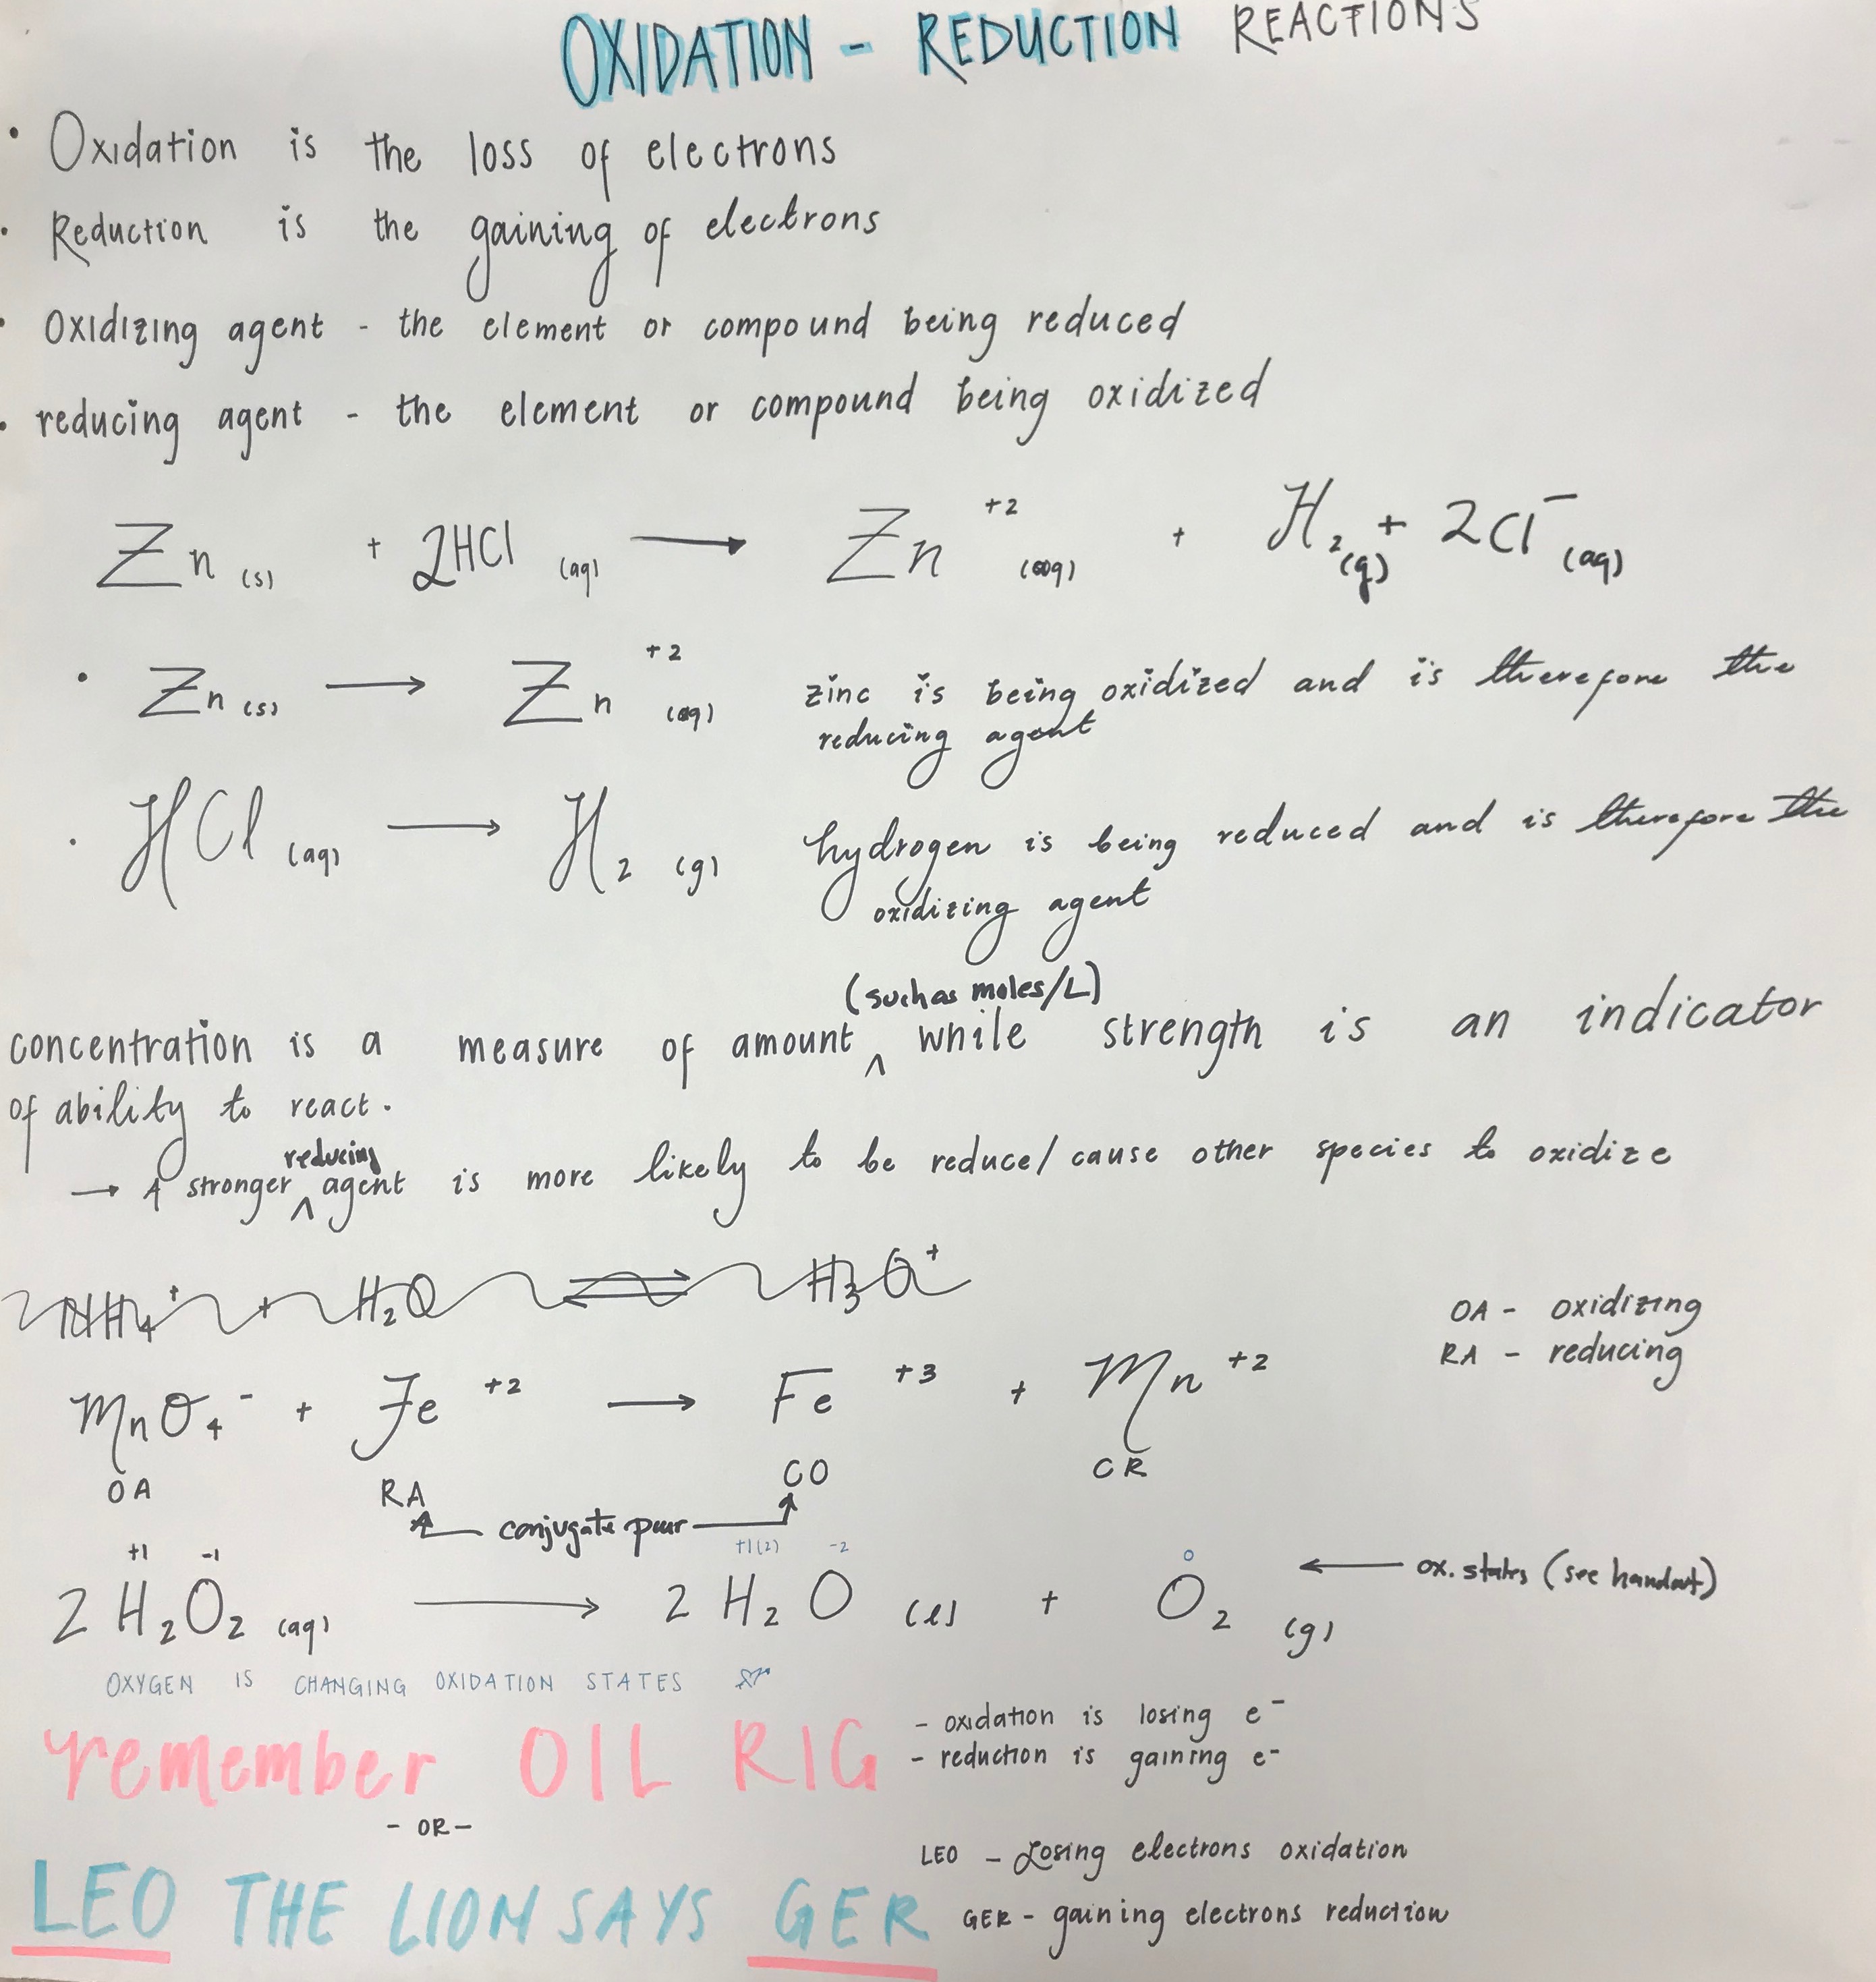 OXIDATION - REDUCTION REACTIONS
• Oxidation is the loss of electrons
• Reduction is the gaining of electrons
• Oxidizing agent - the element or compound being reduced
• reducing agent - the element or compound being oxidized
Zn (s) + 2HCl (aq) → Zn +2 (aq) + H2 (g) + 2Cl⁻ (aq)
• Zn (s) → Zn +2 (aq) zinc is being oxidized and is therefore the
reducing agent
• HCl (aq) → H2 (g) hydrogen is being reduced and is therefore the
oxidizing agent
(such as moles/L)
concentration is a measure of amount ^ while strength is an indicator
of ability to react.
reducing
→ A stronger ^ agent is more likely to be reduce/ cause other species to oxidize
NH4⁺ + H2O ⇌ H3O⁺
OA - oxidizing
RA - reducing
MnO4⁻ + Fe +2 → Fe +3 + Mn +2
OA RA CO CR
conjugate pair
+1 -1 +1(2) -2 0
2 H2O2 (aq) → 2 H2O (l) + O2 (g) ← ox. states (see handout)
OXYGEN IS CHANGING OXIDATION STATES
remember OIL RIG
- oxidation is losing e⁻
- reduction is gaining e⁻
- OR -
LEO THE LION SAYS GER
LEO - Losing electrons oxidation
GER - gaining electrons reduction